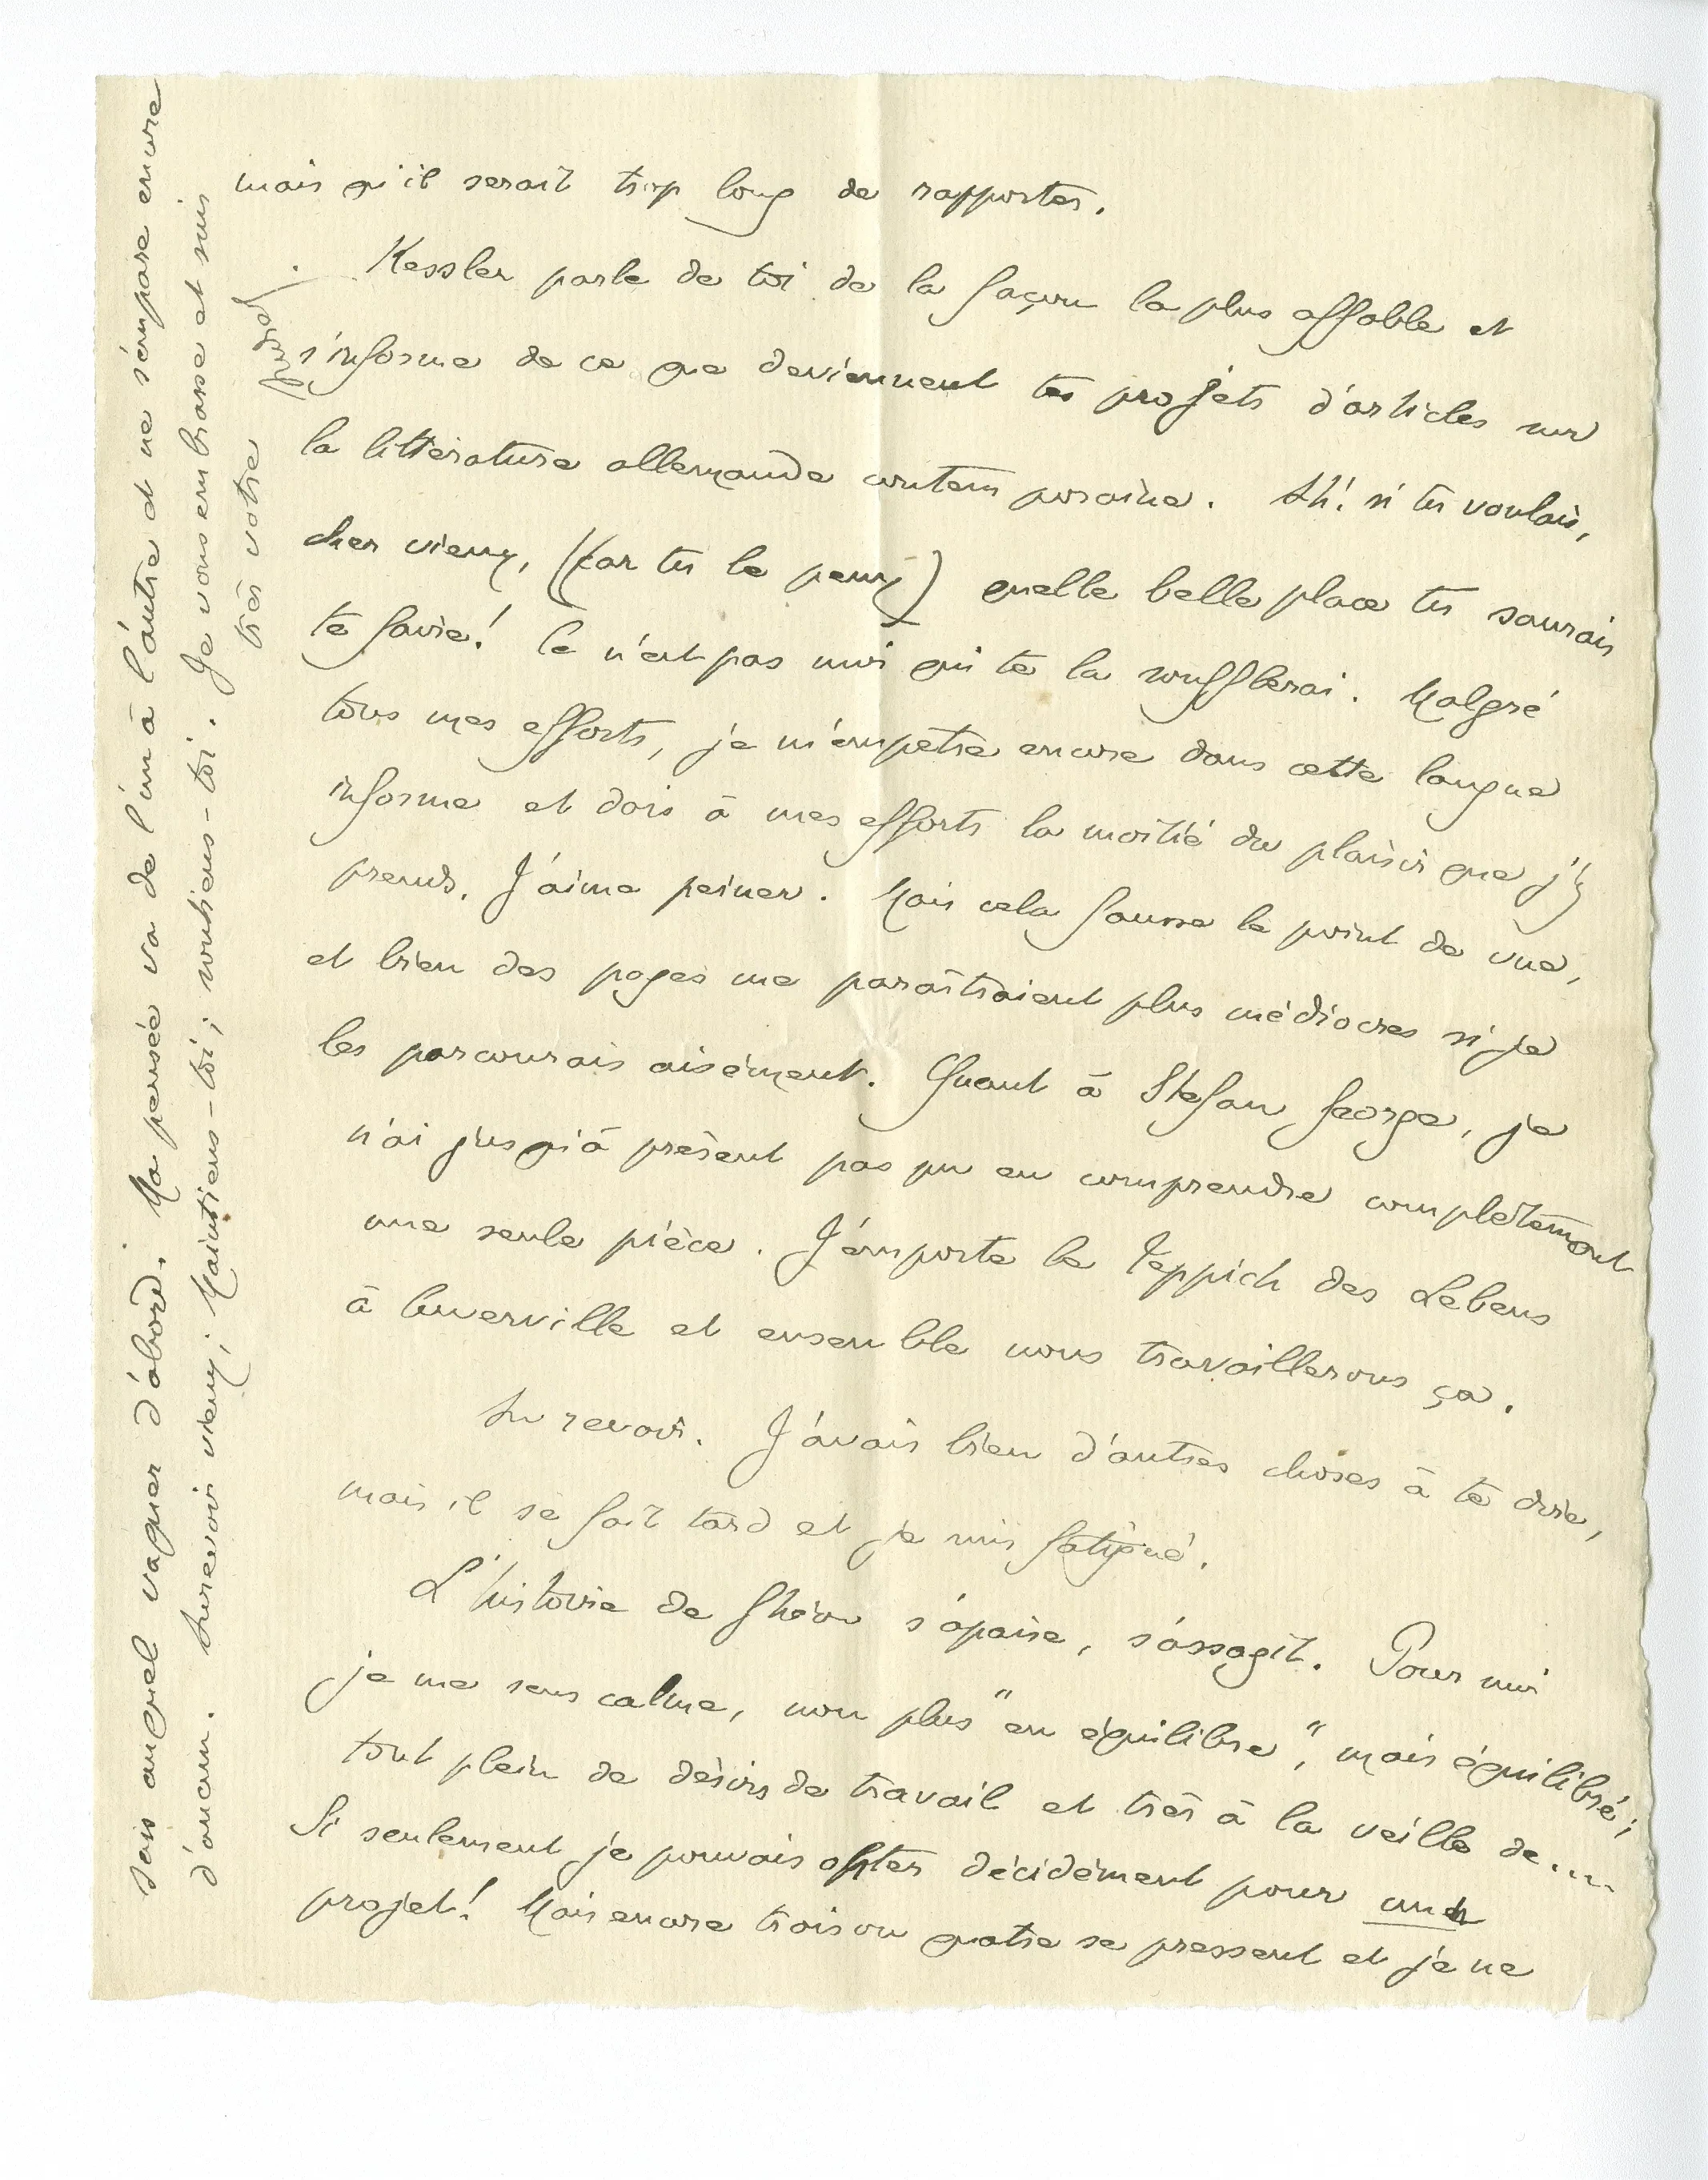 mais qu'il serait trop long de rapporter.
Kessler parle de toi de la façon la plus affable et
s'informe de ce que deviennent tes projets d'articles sur
la littérature allemande contemporaine. Ah! si tu voulais,
cher vieux, (car tu le peux) quelle belle place tu saurais
te faire! Ce n'est pas moi qui te la soufflerai. Malgré
tous mes efforts, je m'empêtre encore dans cette langue
informe et dois à mes efforts la moitié du plaisir que j'y
prends. J'aime peiner. Mais cela fausse le point de vue,
et bien des pages me paraîtraient plus médiocres si je
les parcourais aisément. Quant à Stefan George, je
n'ai jusqu'à présent pas pu en comprendre complètement
une seule pièce. J'emporte le Teppich des Lebens
à Cuverville et ensemble nous travaillerons ça.
Au revoir. J'avais bien d'autres choses à te dire,
mais il se fait tard et je suis fatigué.
L'histoire de Ghéon s'apaise, s'assagit. Pour moi
je me sens calme, non plus "en équilibre", mais équilibré;
tout plein de désirs de travail et très à la veille de....
Si seulement je pouvais opter décidément pour un
projet! Mais encore trois ou quatre se pressent et je ne
sais auquel vaquer d'abord. Ma pensée va de l'un à l'autre et ne s'empare encore
d'aucun. Au revoir vieux; Maintiens-toi; soutiens-toi. Je vous embrasse et suis
très votre